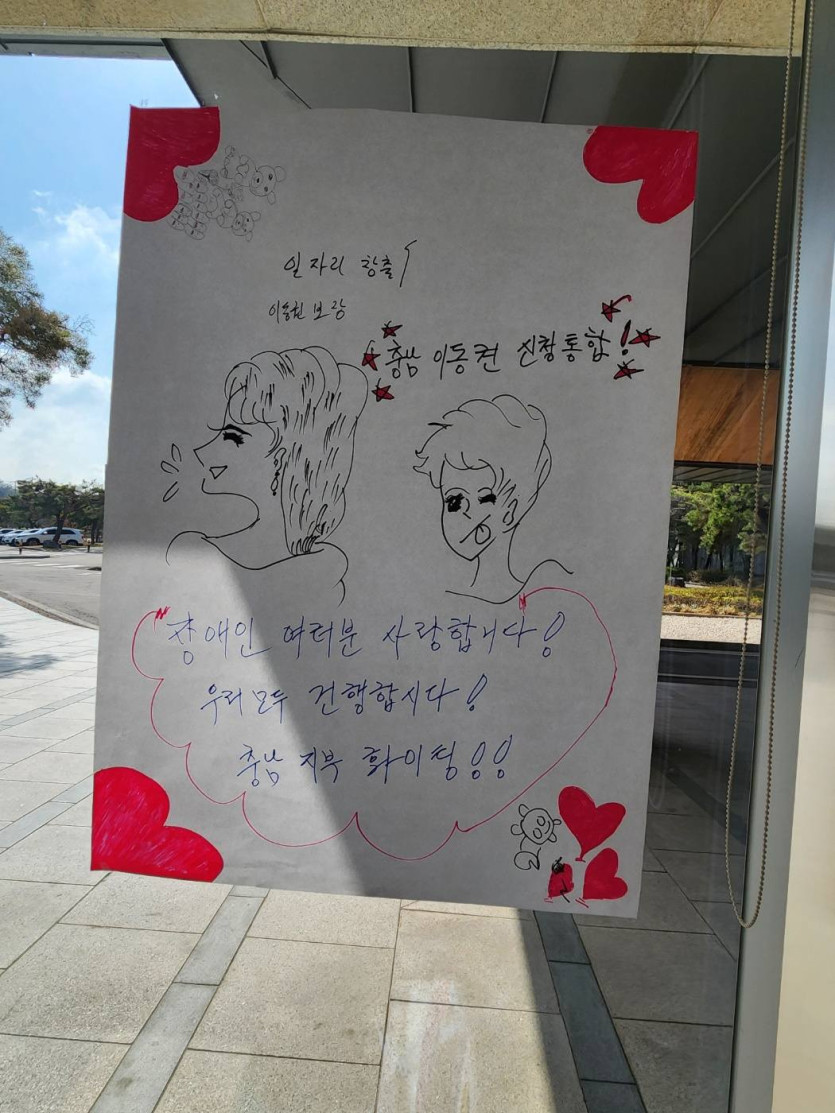 일자리 창출
이동권 보장
충남 이동권 통합!
장애인 여러분 사랑합니다!
우리 모두 건행합시다!
충남 지부 화이팅!!